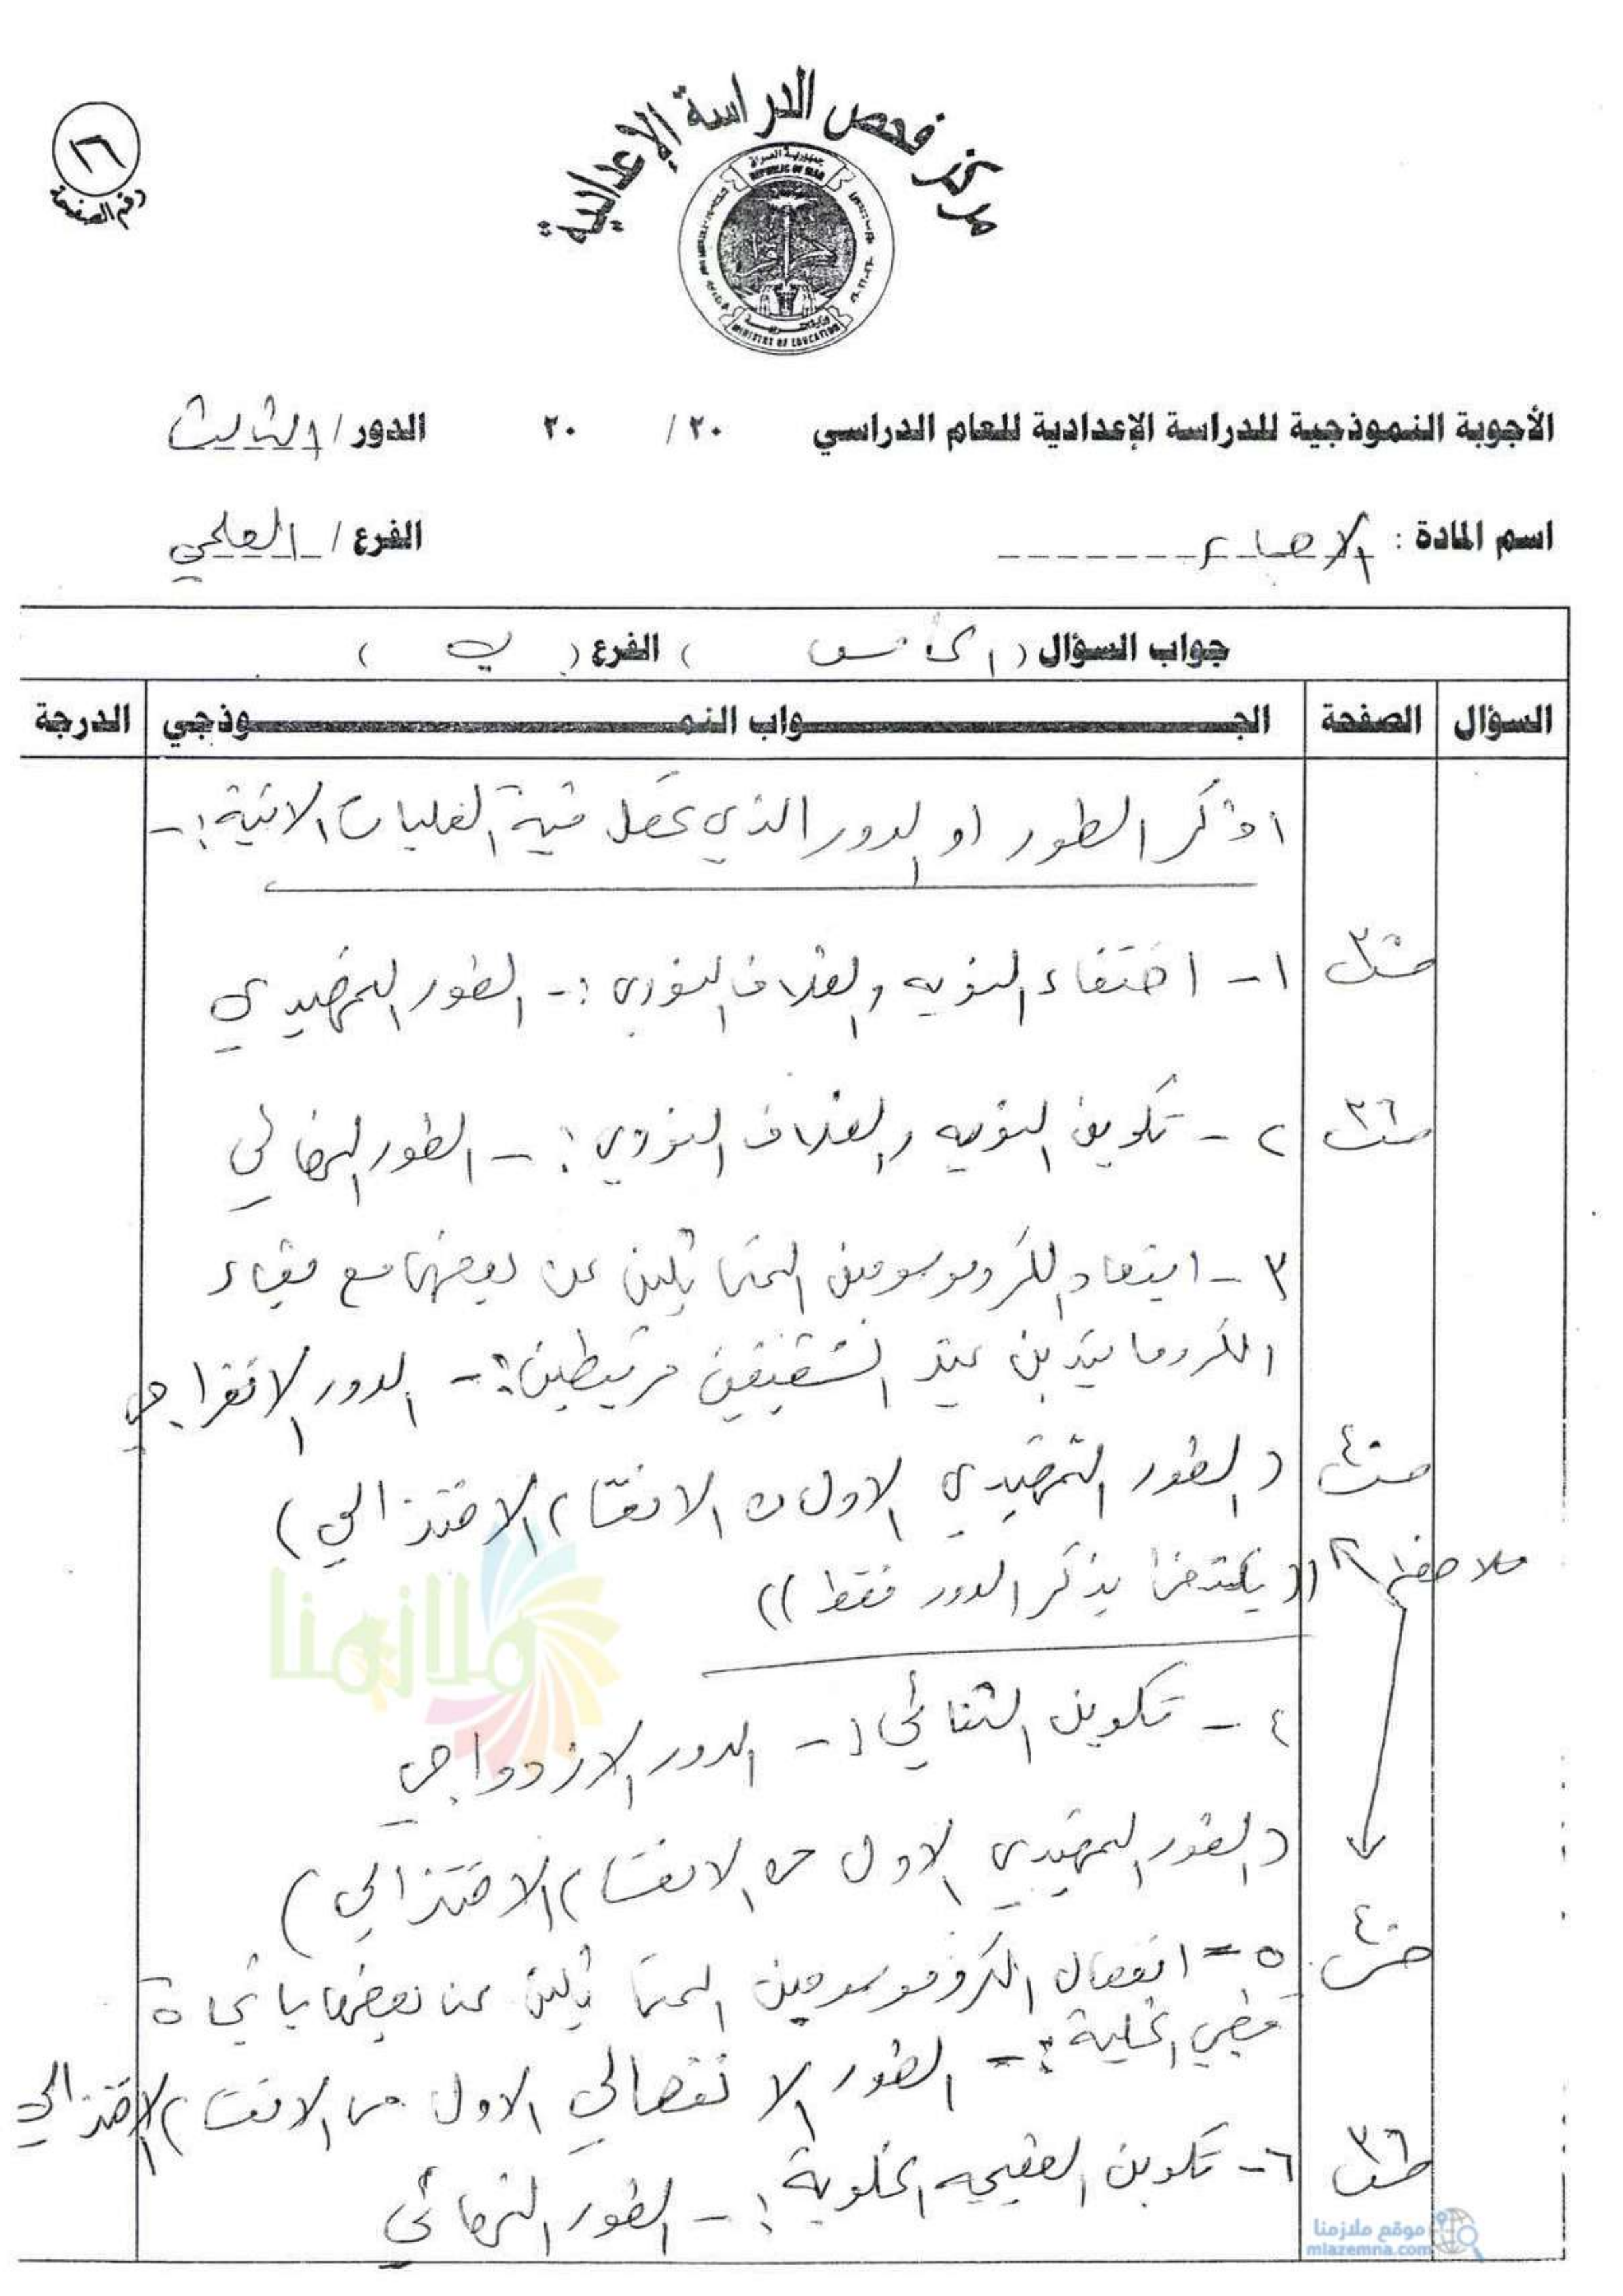 مركز فحص الدراسة الإعدادية
جمهورية العراق
REPUBLIC OF IRAQ
MINISTRY OF EDUCATION
١٦
رقم الصفحة
الأجوبة النموذجية للدراسة الإعدادية للعام الدراسي ٢٠ / ٢٠ الدور / الثالث
اسم المادة : الاحياء الفرع / العلمي
جواب السؤال ( الخامس ) الفرع ( ب )
السؤال الصفحة الجـــواب النمـــوذجي الدرجة
اذكر الطور او الدور الذي تحصل فيه الفعاليات الاتية :-
١- اختفاء النويه والغلاف النووي :- الطور التمهيدي
ص٣٥
٢- تكوين النويه والغلاف النووي :- الطور النهائي
ص٣٦
٣- ابتعاد الكروموسومين المتماثلين عن بعضهما مع بقاء
الكروماتيدين عند الشقيقين مرتبطين :- الدور الانفراجي
( الطور التمهيدي الاول من الانقسام الاختزالي )
ص٤٠
ملاحظة (( يكتفى بذكر الدور فقط ))
٤- تكوين الثنائي :- الدور الازدواجي
( الطور التمهيدي الاول من الانقسام الاختزالي )
ص٤٠
٥- انفصال الكروموسومين المتماثلين عن بعضهما باتجاه
قطبي الخلية :- الطور الانفصالي الاول من الانقسام الاختزالي
٦- تكوين الصفيحه الخلوية :- الطور النهائي
ص٣٦
ملازمنا
موقع ملازمنا
mlazemna.com